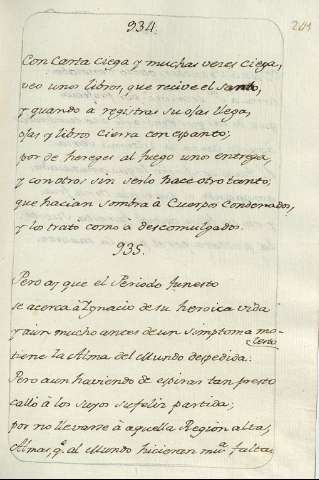 934.
201
Con Carta ciega y muchas veces ciega,
veo unos libros, que recive el santo,
y quando à registrar su ojas llega,
ojas y libros cierra con espanto;
por de hereges al fuego unos entrega,
y con otros sin serlo hace otro tanto;
que hacian sombra à Cuerpos Condenados,
y los trató como à descomulgados.
935.
Pero ay que el Periodo funesto
se acerca à Ygnacio de su heroica vida
y aun mucho antes de un simptoma mo-
lesto
tiene la Alma del Mundo despedida.
Pero aun haviendo de espirar tan presto
calló à los suyos su feliz partida;
por no llevarse à aquella Region alta,
Almas, q.e al Mundo hicieran m.a falta.